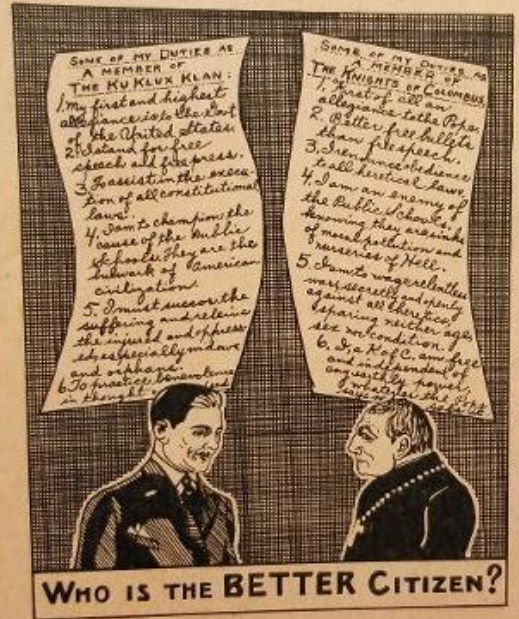 SOME OF MY DUTIES AS
A MEMBER OF
THE KU KLUX KLAN:
1. My first and highest
allegiance is to the Govt
of the United States.
2. I stand for free
speech and free press.
3. To assist in the execu-
tion of all constitutional
laws.
4. I am to champion the
cause of the Public
Schools. They are the
bulwark of American
civilization.
5. I must succor the
suffering and relieve
the injured and oppress-
ed, especially widows
and orphans.
6. To practice benevolence
in thought
SOME OF MY DUTIES AS
A MEMBER OF
THE KNIGHTS OF COLOMBUS,
1. First of all an
allegiance to the Pope.
2. Better free bullets
than free speech.
3. I renounce obedience
to all heretical laws.
4. I am an enemy of
the Public Schools,
knowing they are sinks
of moral pollution and
nurseries of Hell.
5. I am to wage relentless
wars secretly and openly
against all heretics,
sparing neither age,
sex nor condition.
6. I, a K of C. am free
and independent of
any earthly power,
the Pope
WHO IS THE BETTER CITIZEN?